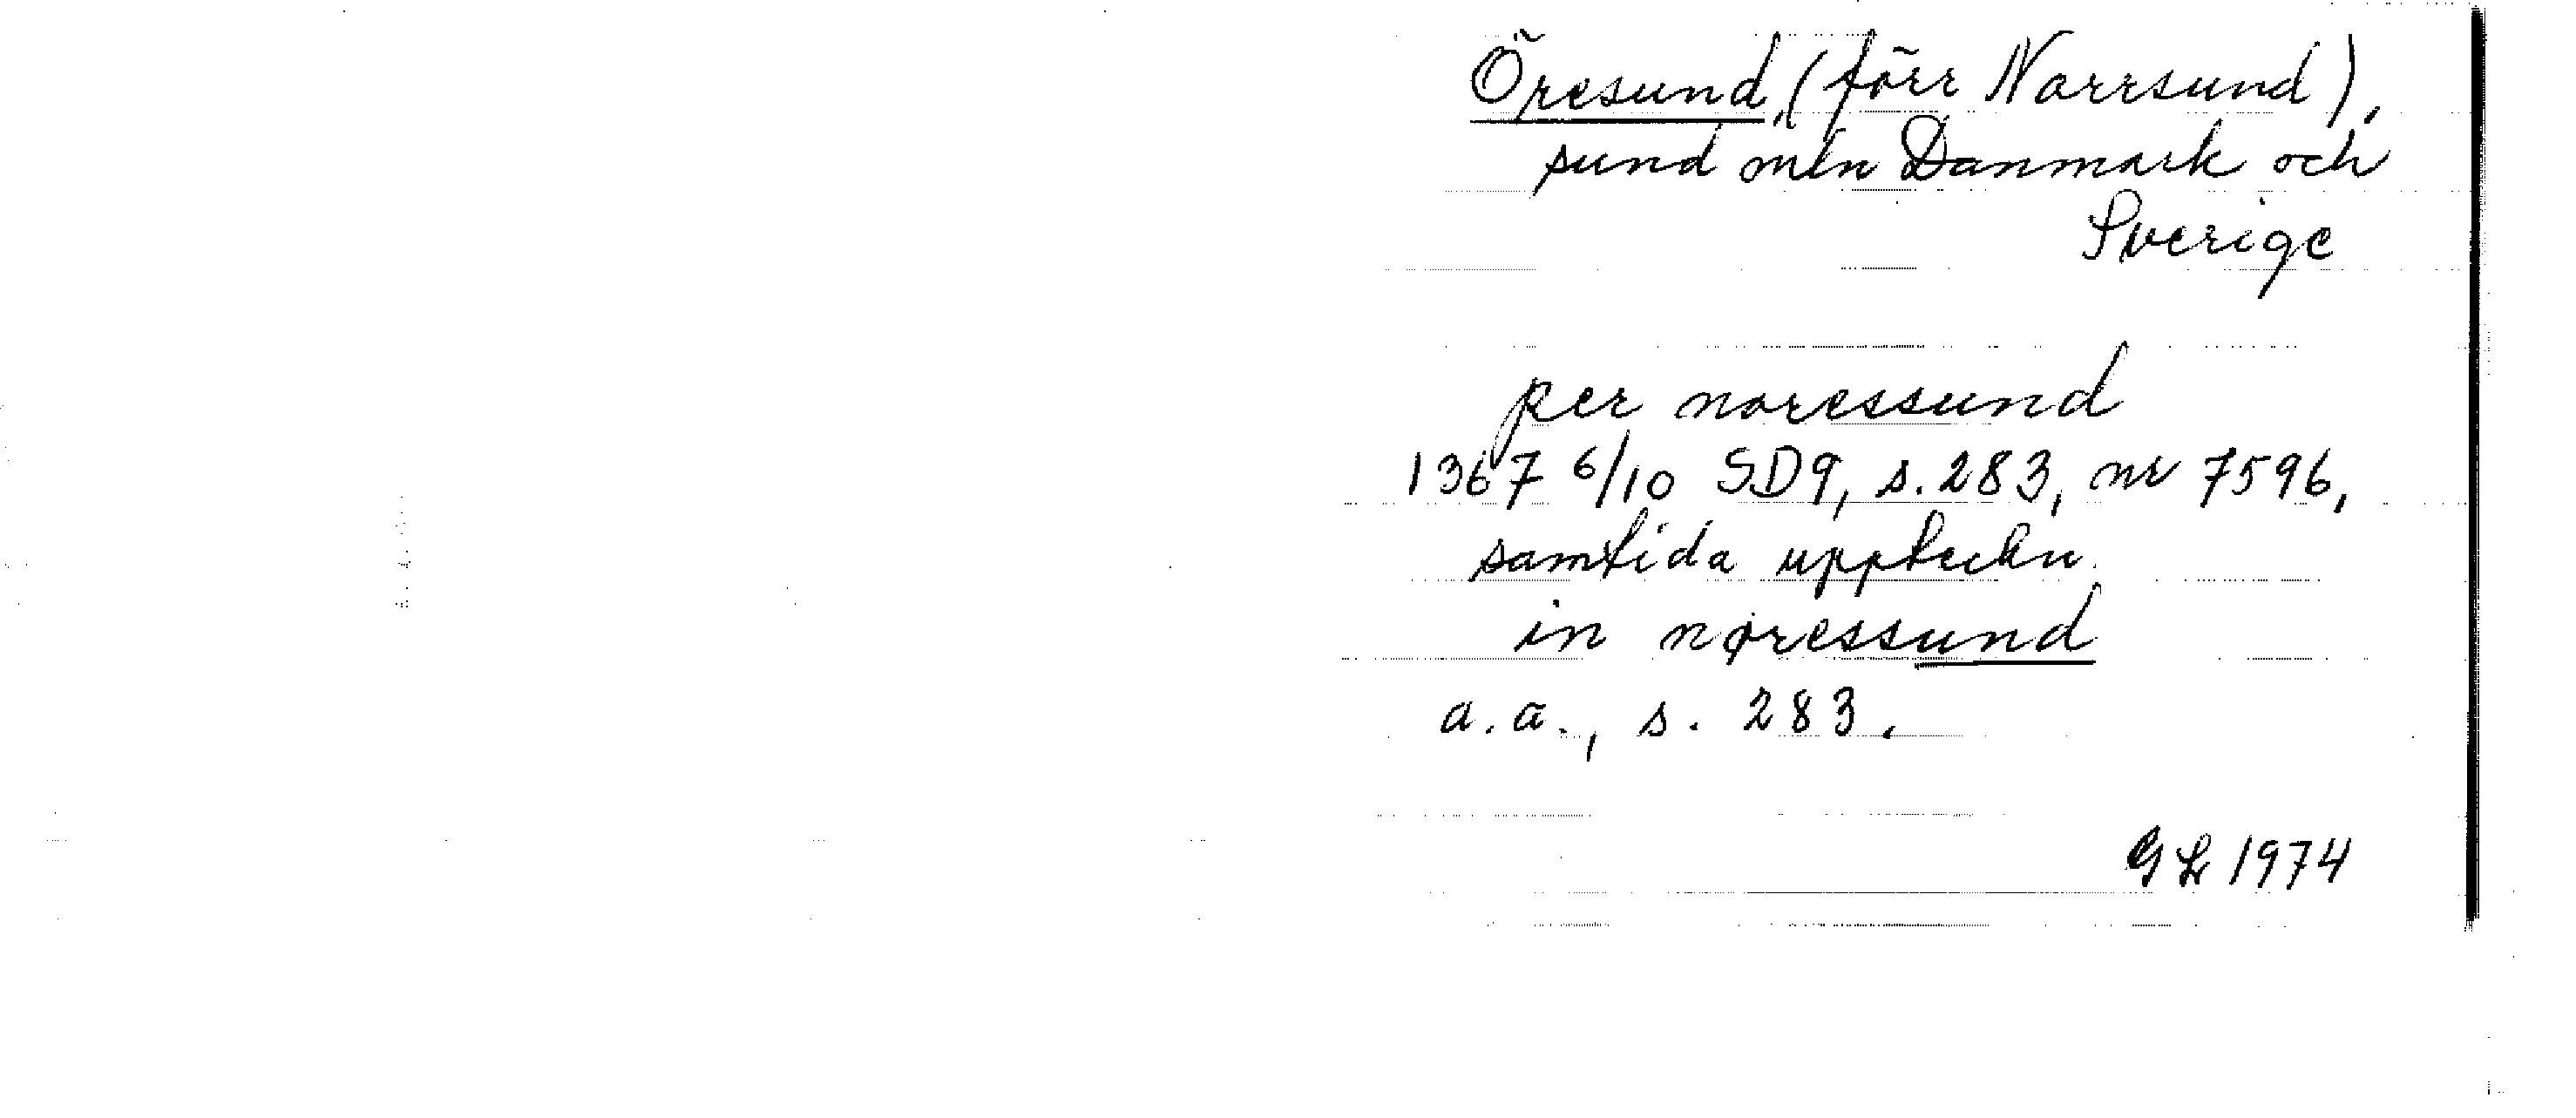 Öresund, (förr Norrsund),
sund mln Danmark och
Sverige
per noressund
1367 6/10 SD9, s. 283, nr 7596,
samtida uppteckn.
in nøressund
a.a., s. 283.
GL 1974